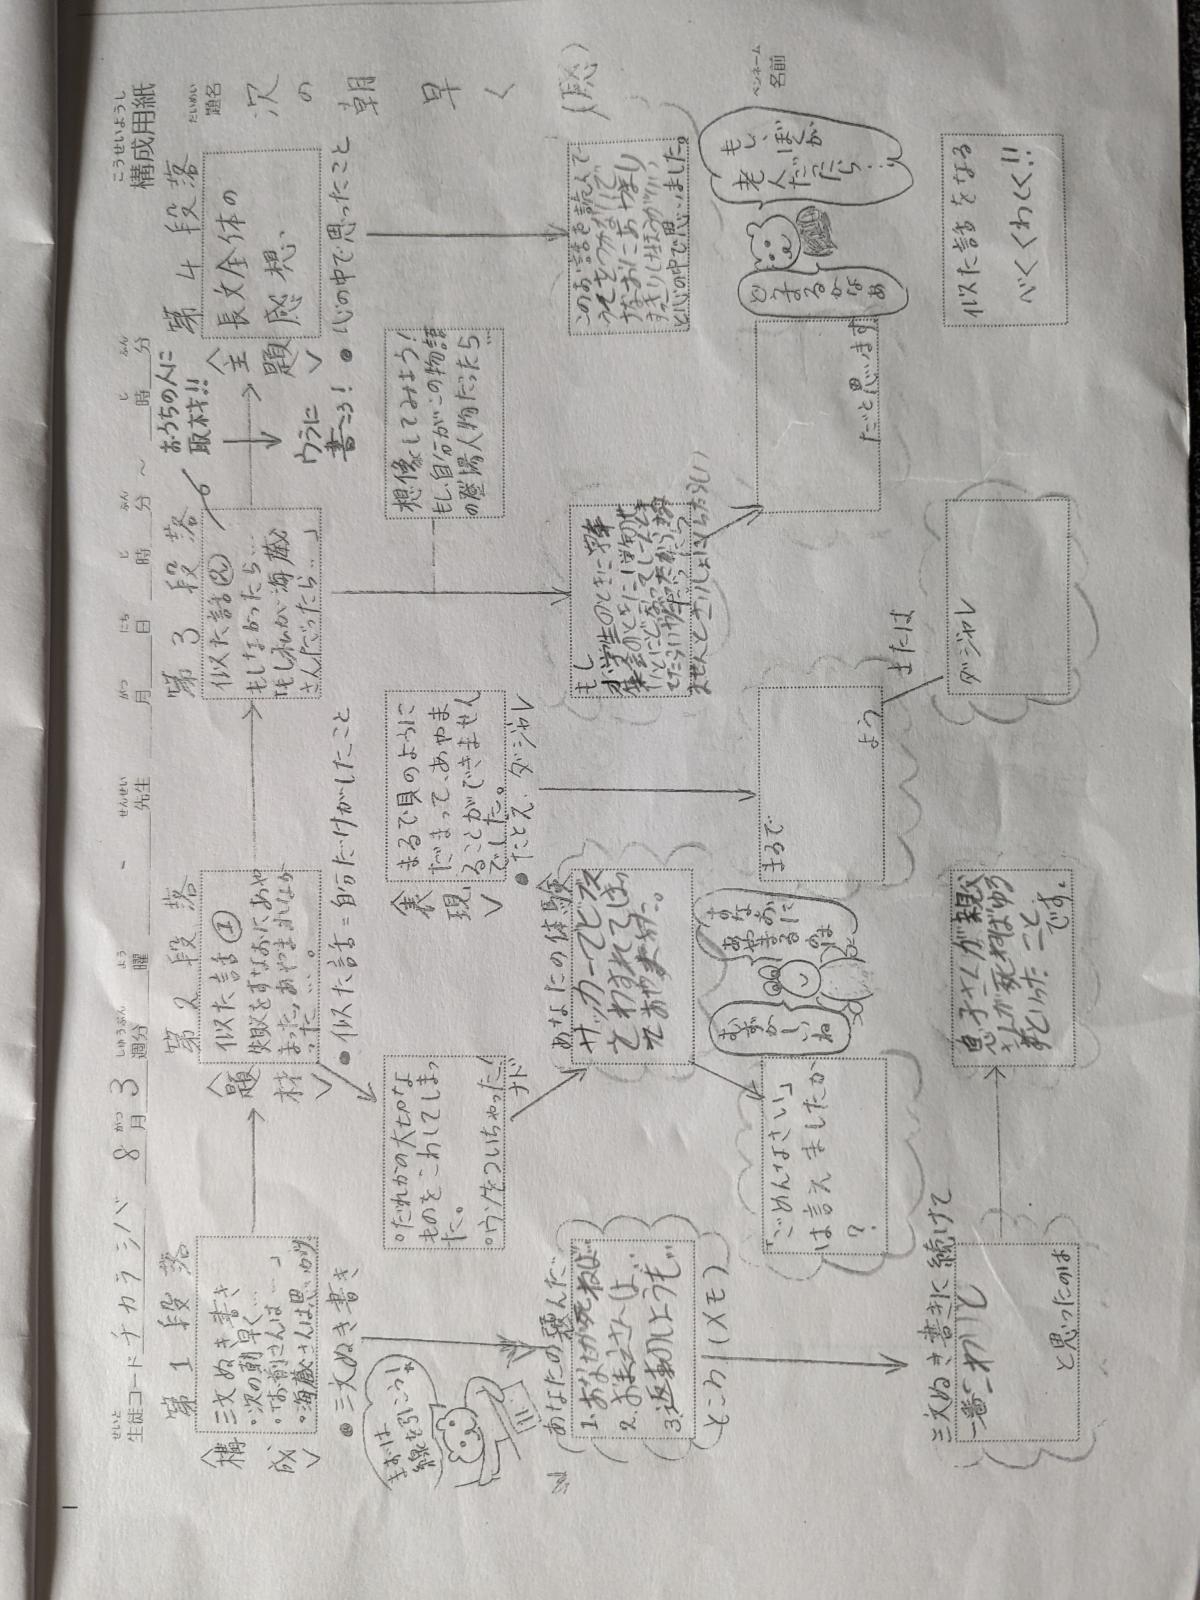 こうせいようし
構成用紙
たいめい
題名
次の朝早く(感)
ペンネーム
名前
せいと
生徒コード チカラシバ 8 がつ月 3 しゅうぶん週分 よう曜 せんせい先生 がつ月 にち日 じ時 ふん分 ~ じ時 ふん分
第1段落
〈構成〉
三文ぬき書き
・次の朝早く…
・「お前さんは…」
・海蔵さんは思いがけ
●三文ぬき書き
まずは
線を引こうね
あなたの選んだ
1.おなせが死ねば…
2.おまえさんは…
3.返事のしようも…
ところ(メモ)
三文ぬき書きに続けて
一番こわいし
と思ったのは
息子さんが親父
さんが死ねばゆる
すといったこと
です。
第2段落
〈題材〉
似た話①
失敗をすなおにあや
まった、あやまれなか
った……。
●似た話=自分だけがしたこと
○だれかの大切な
ものをこわしてしまっ
た。
○ウソをついちゃった!
ナド
あなたの体験
サッカーでビブス
をわすれてしまっ
てあやまった。
「ごめんなさい」
は言えましたか
?
すなおに
あやまる
のは
むずかしいね
〈表現〉
まるで貝のように
だまって、あやま
ることができません
でした。
●たとえ・ダジャレ
まるで
よう
または
ダジャレ
第3段落
似た話②
もしなかったら…
「もしわしが海蔵
さんだったら…」
おうちの人に
取材!!
ウラに
書こう!
想像してみよう!
もし自分がこの物語
の登場人物だったら
もし
小学生のときに
だと思います
第4段落
〈主題〉
長文全体の
感想
●心の中で思ったこと
このお話を読んで
うそをつかないで
すなおにあやまり
と心の中で思いました。
もしぼくが
老人だったら…
どうするかなあ
似た話をなる
べくくわしく!!